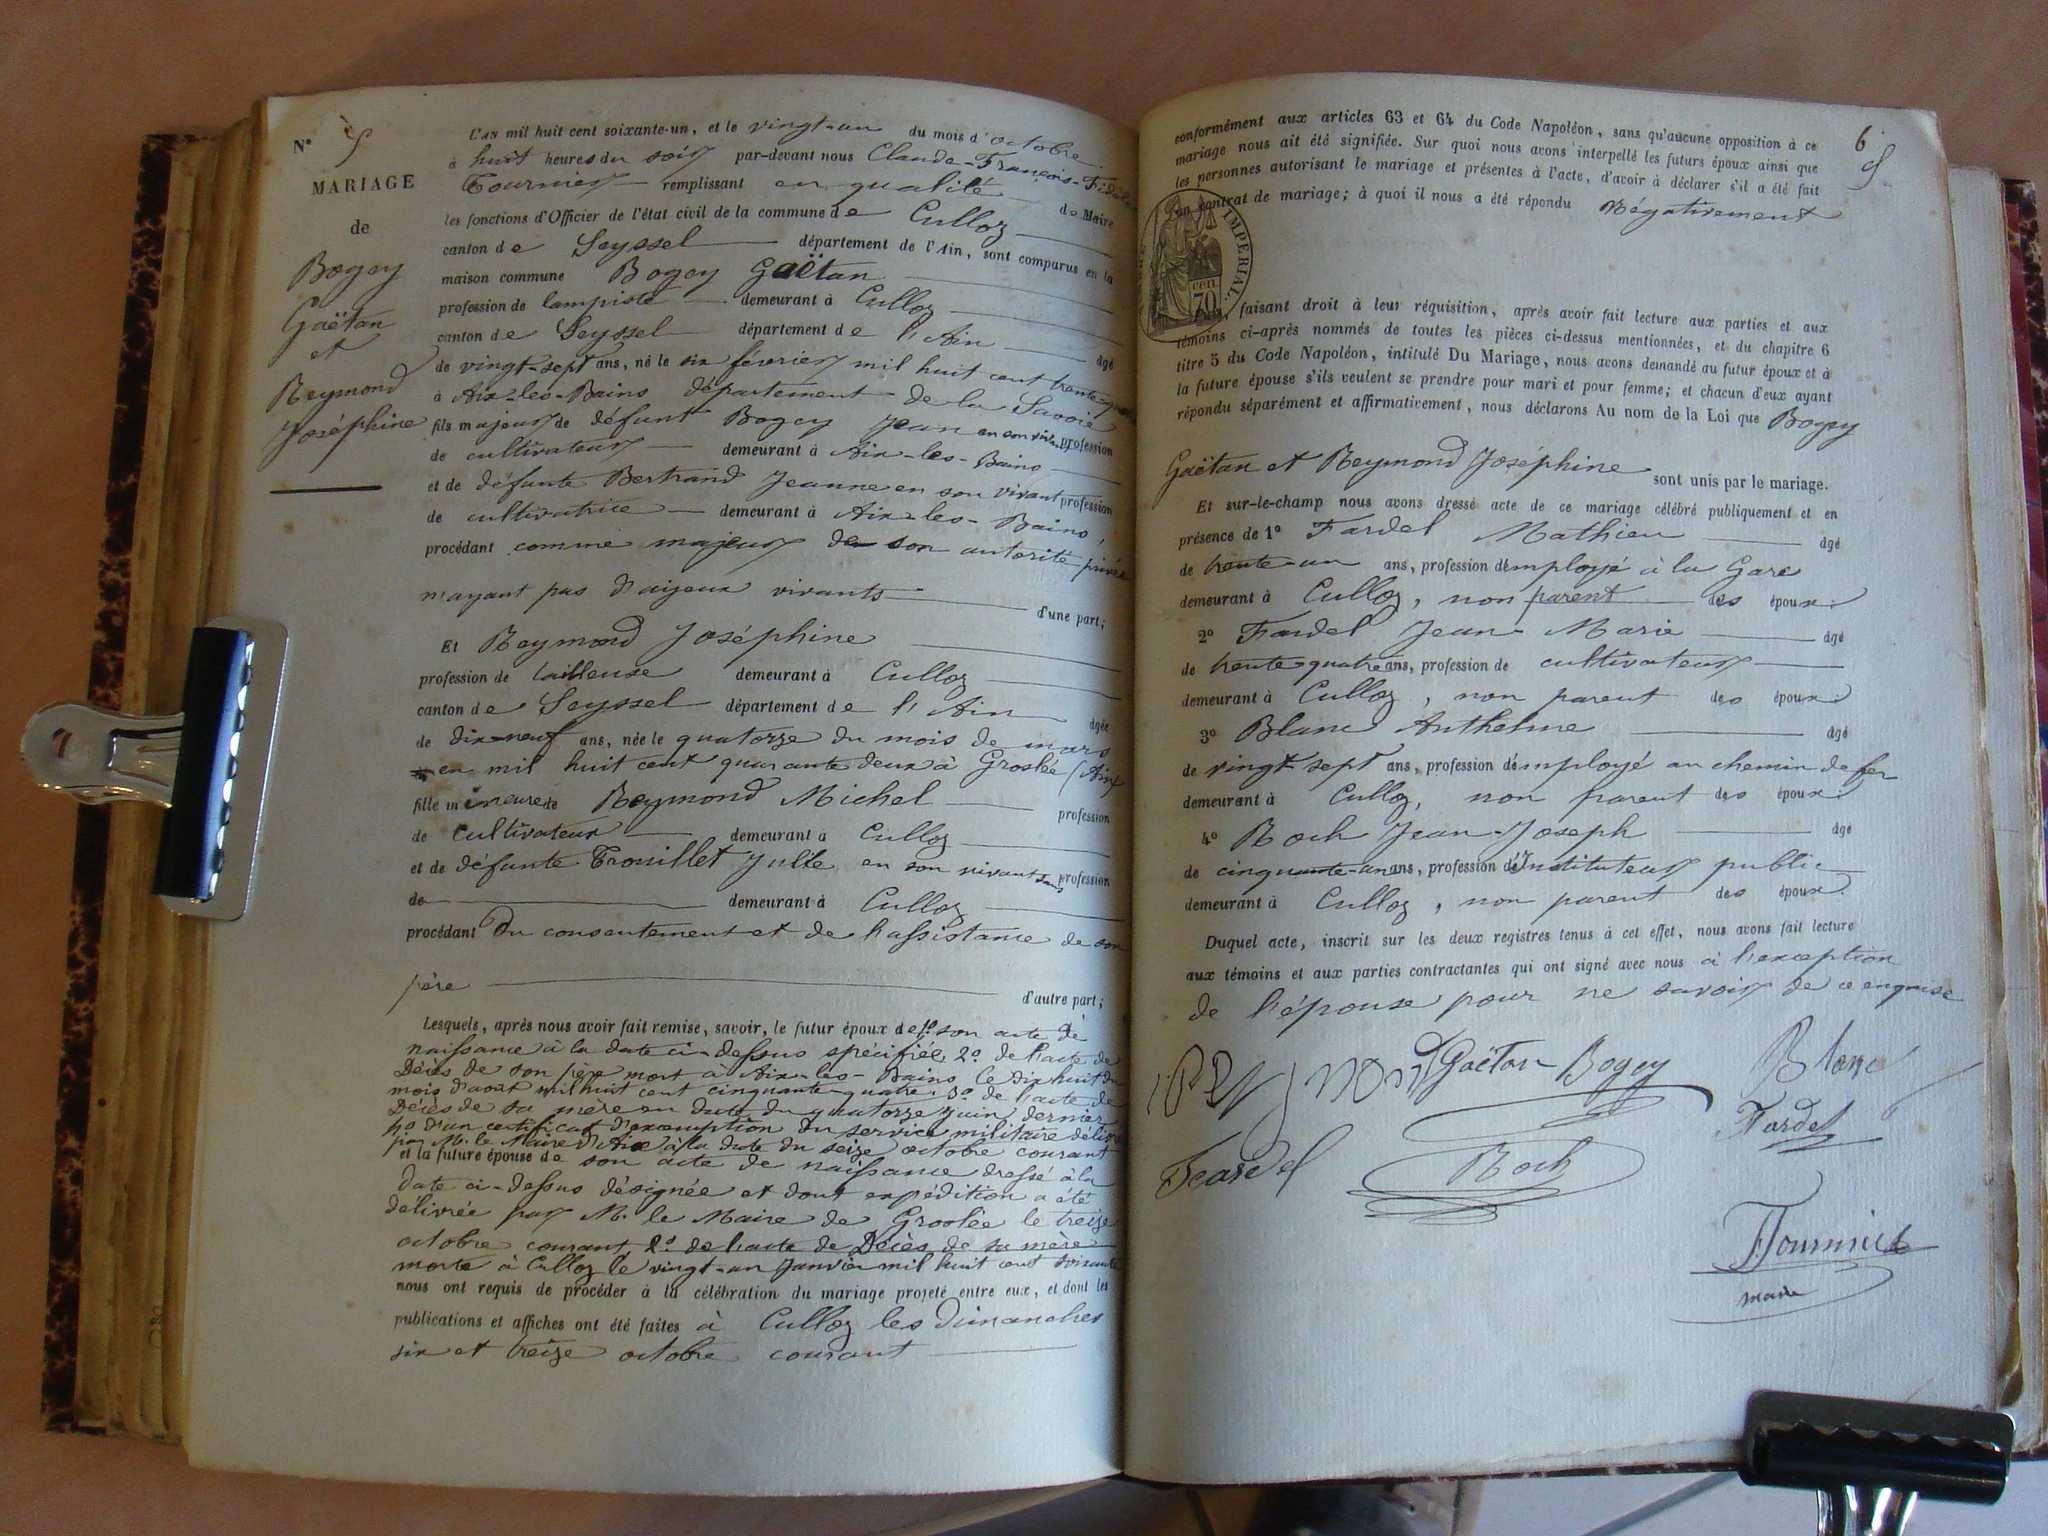 N° 5
MARIAGE
de
Bogey
Gaëtan
et
Reymond
Joséphine
L'AN mil huit cent soixante-un, et le vingt-un du mois d'octobre
à huit heures du soir par-devant nous Claude-François-Fidèle
Tournier remplissant en qualité de Maire
les fonctions d'Officier de l'état civil de la commune de Culloz
canton de Seyssel département de l'Ain, sont comparus en la
maison commune Bogey Gaëtan
profession de lampiste demeurant à Culloz
canton de Seyssel département de l'Ain âgé
de vingt-sept ans, né le six février mil huit cent trente-quatre
à Aix-les-Bains département de la Savoie
fils majeur de défunt Bogey Jean en son vivant profession
de cultivateur demeurant à Aix-les-Bains
et de défunte Bertrand Jeanne en son vivant profession
de cultivatrice demeurant à Aix-les-Bains,
procédant comme majeur de son autorité privée
n'ayant pas d'aïeux vivants d'une part;
Et Reymond Joséphine
profession de tailleuse demeurant à Culloz
canton de Seyssel département de l'Ain âgée
de dix-neuf ans, née le quatorze du mois de mars
en mil huit cent quarante deux à Groslée (Ain)
fille mineure de Reymond Michel profession
de cultivateur demeurant à Culloz
et de défunte Trouillet Julie en son vivant sans profession
de demeurant à Culloz
procédant du consentement et de l'assistance de son
père d'autre part;
Lesquels, après nous avoir fait remise, savoir, le futur époux de 1° son acte de
naissance à la date ci-dessus spécifiée, 2° de l'acte de
Décès de son père mort à Aix-les-Bains le dix huit du
mois d'août mil huit cent cinquante-quatre, 3° de l'acte de
Décès de sa mère en date du quatorze Juin dernier
4° d'un certificat d'exemption du service militaire délivré
par M. le Maire d'Aix à la date du seize octobre courant
et la future épouse de son acte de naissance dressé à la
date ci-dessus désignée et dont expédition a été
délivrée par M. le Maire de Groslée le treize
octobre courant, 2° de l'acte de Décès de sa mère
morte à Culloz le vingt-un Janvier mil huit cent soixante
nous ont requis de procéder à la célébration du mariage projeté entre eux, et dont les
publications et affiches ont été faites à Culloz les Dimanches
six et treize octobre courant
6
5
conformément aux articles 63 et 64 du Code Napoléon, sans qu'aucune opposition à ce
mariage nous ait été signifiée. Sur quoi nous avons interpellé les futurs époux ainsi que
les personnes autorisant le mariage et présentes à l'acte, d'avoir à déclarer s'il a été fait
un contrat de mariage; à quoi il nous a été répondu Négativement
IMPERIAL.
70 cen.
faisant droit à leur réquisition, après avoir fait lecture aux parties et aux
témoins ci-après nommés de toutes les pièces ci-dessus mentionnées, et du chapitre 6
titre 5 du Code Napoléon, intitulé Du Mariage, nous avons demandé au futur époux et à
la future épouse s'ils veulent se prendre pour mari et pour femme; et chacun d'eux ayant
répondu séparément et affirmativement, nous déclarons Au nom de la Loi que Bogey
Gaëtan et Reymond Joséphine sont unis par le mariage.
Et sur-le-champ nous avons dressé acte de ce mariage célébré publiquement et en
présence de 1° Fardel Mathieu âgé
de trente-un ans, profession d'employé à la Gare
demeurant à Culloz, non parent des époux.
2° Fardel Jean-Marie âgé
de trente-quatre ans, profession de cultivateur
demeurant à Culloz, non parent des époux.
3° Blanc Anthelme âgé
de vingt-sept ans, profession d'employé au chemin de fer
demeurant à Culloz, non parent des époux.
4° Roch Jean-Joseph âgé
de cinquante-un ans, profession d'Instituteur public
demeurant à Culloz, non parent des époux.
Duquel acte, inscrit sur les deux registres tenus à cet effet, nous avons fait lecture
aux témoins et aux parties contractantes qui ont signé avec nous à l'exception
de l'épouse pour ne savoir de ce enquise
Gaëtan Bogey Blanc
Fardel
Feardel Roch
Tournier
maire